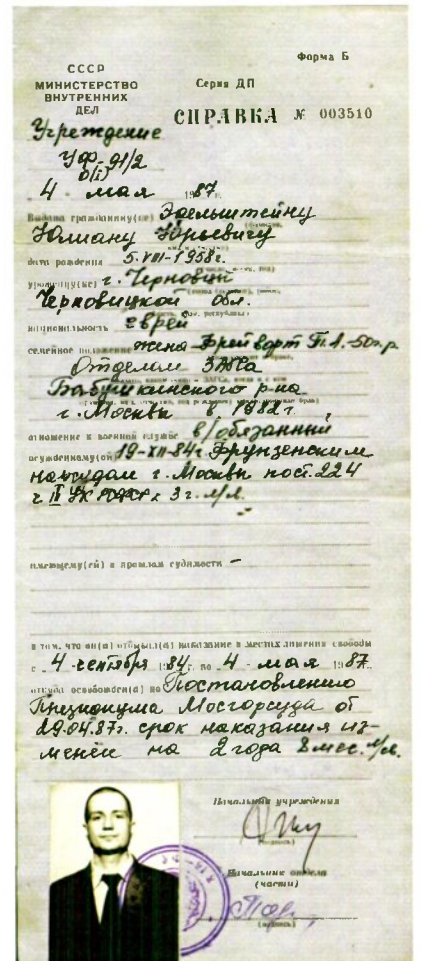 Форма Б
СССР
МИНИСТЕРСТВО
ВНУТРЕННИХ
ДЕЛ
Серия ДП
СПРАВКА № 003510
Учреждение
УФ-91/2
4 мая 1987
Выдана гражданину(ке) Эдельштейну
Юлиану Юрьевичу
дата рождения 5.VIII-1958г.
уроженцу(ке) г. Черновцы
Черновицкой обл.
национальность еврей
семейное положение жена Т.А.-50г.р.
Отделом ЗАГСа
Бабушкинского р-на
г. Москвы в 1982г.
отношение к военной службе в/обязанный
осужденному(ой) 19-XII-84г. Фрунзенским
нарсудом г. Москвы по ст. 224
ч. III УК РСФСР к 3 г. л/св.
имеющему(ей) в прошлом судимости –
в том, что он(а) отбывал(а) наказание в местах лишения свободы
с 4 сентября 1984 г. по 4 мая 1987
откуда освобожден(а) по Постановлению
Президиума Мосгорсуда от
29.04.87г. срок наказания из-
менён на 2 года 8 мес. л/св.
Начальник учреждения
(подпись)
Начальник отдела
(части)
(подпись)